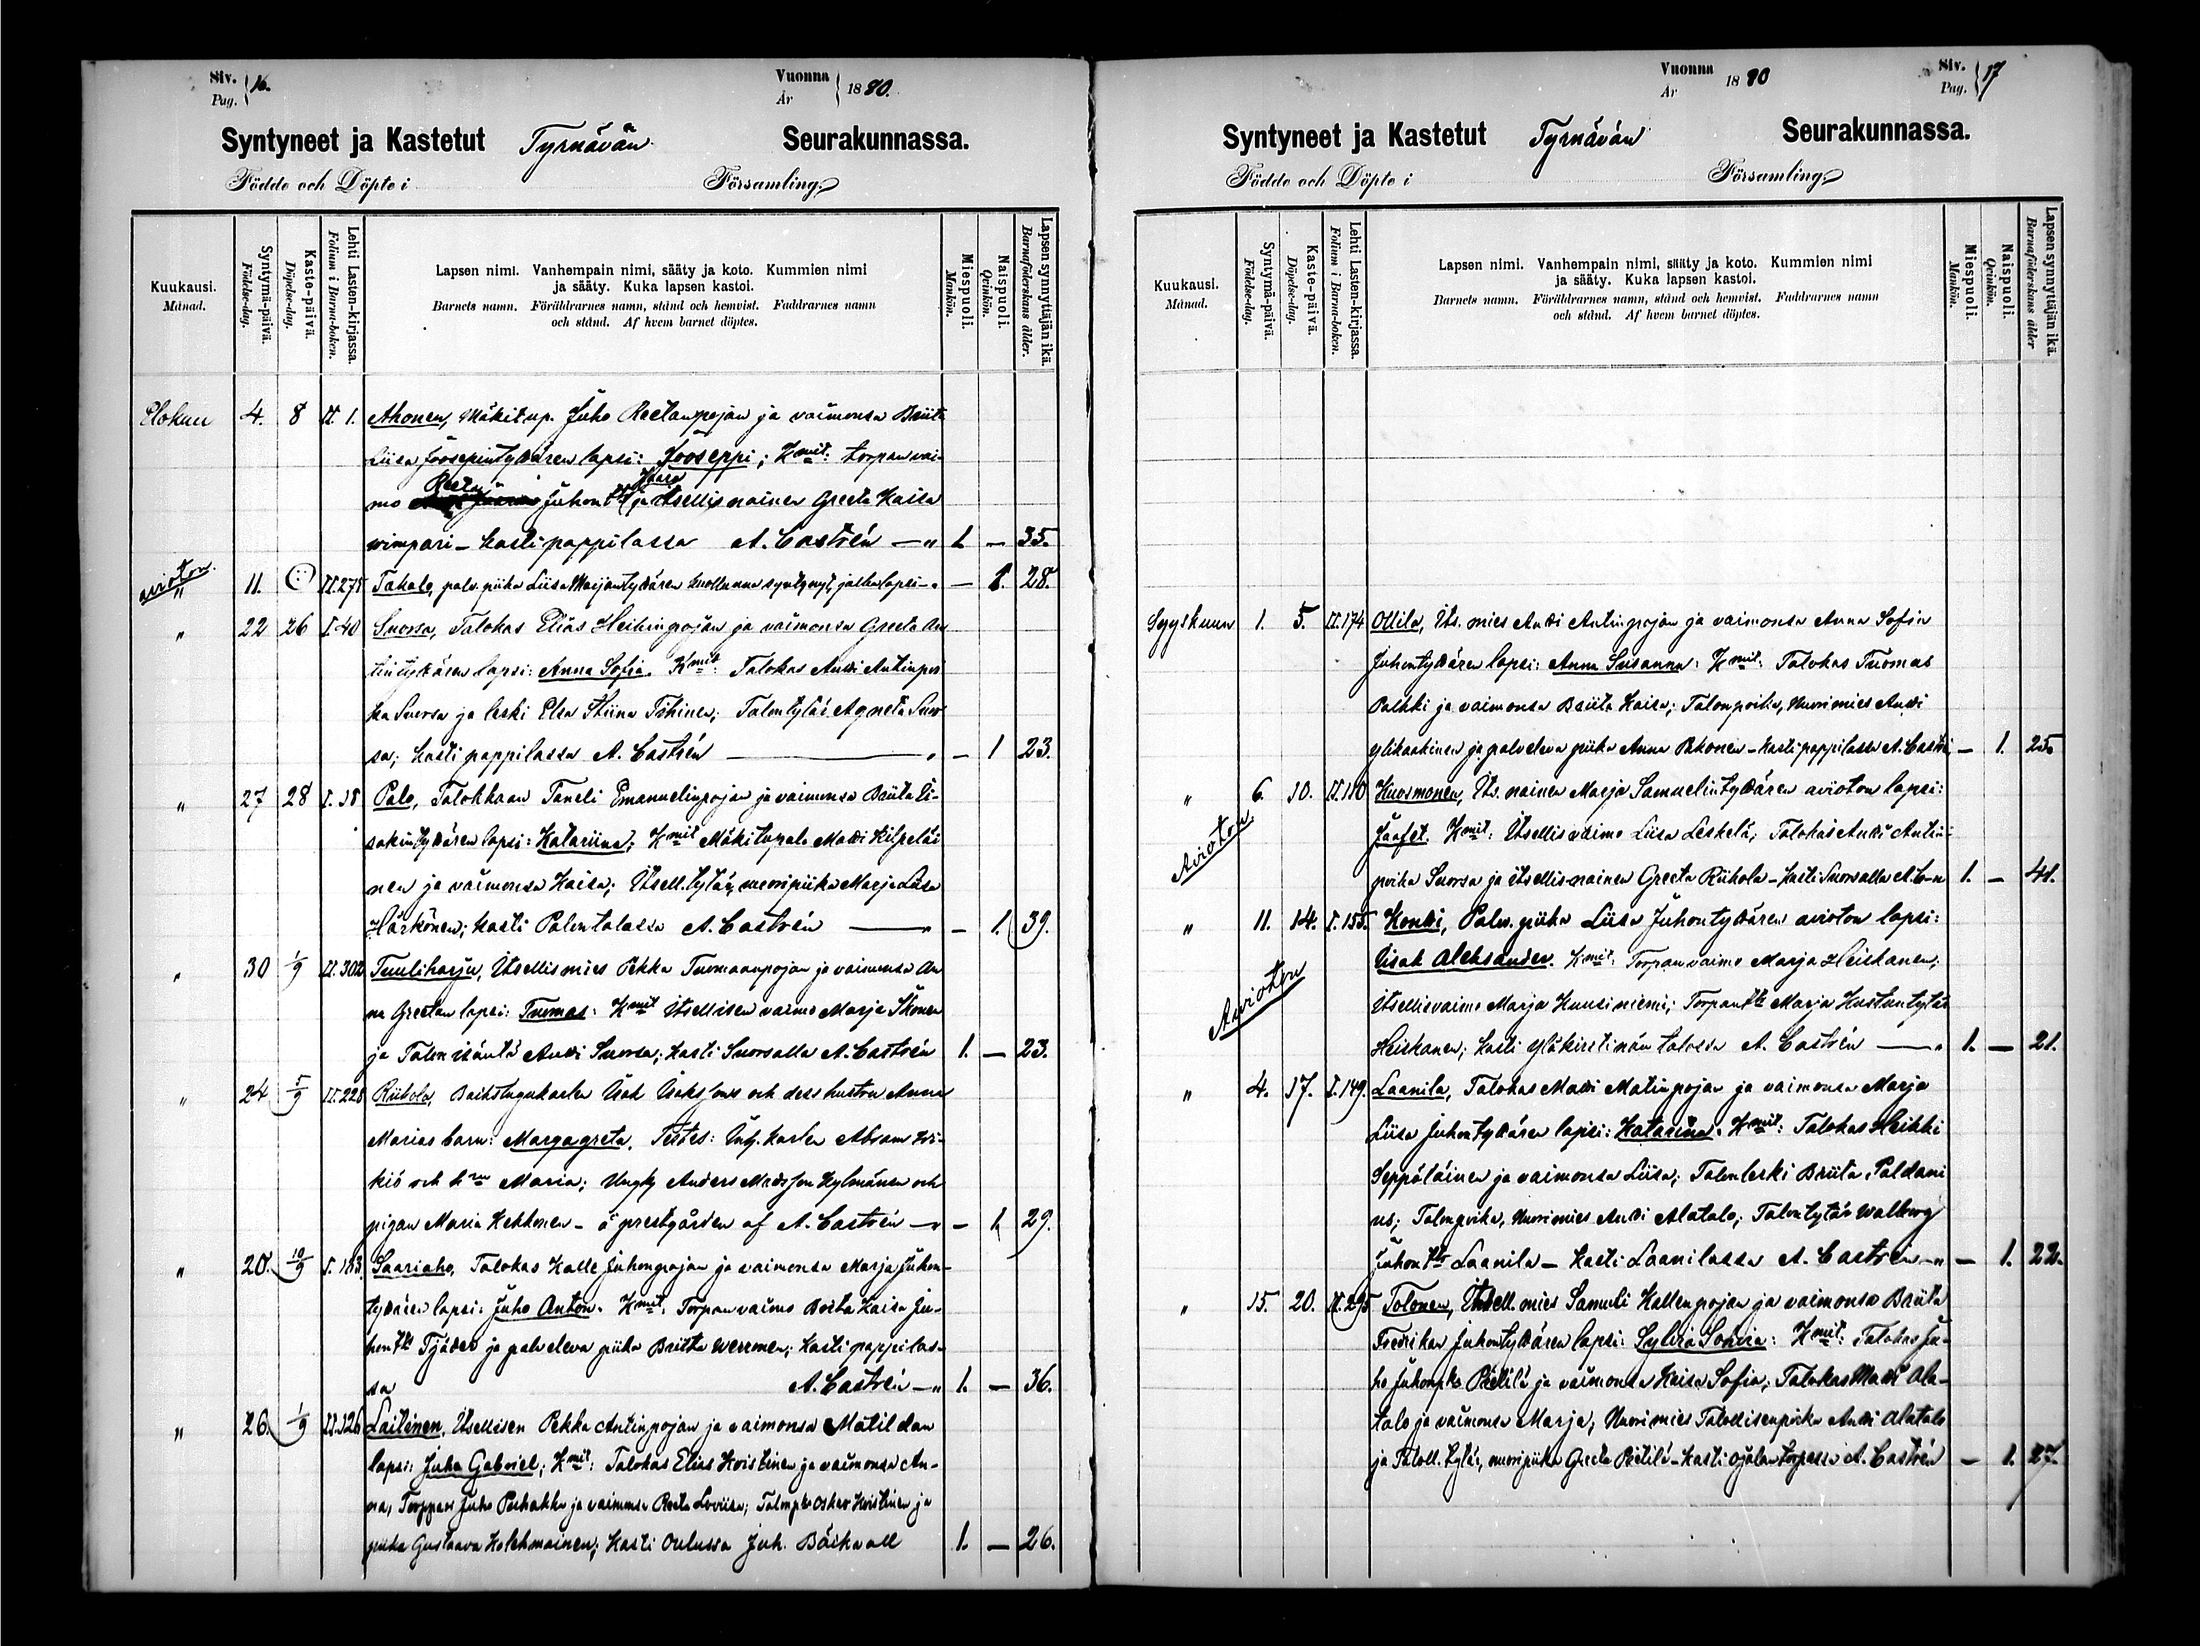 Siv. Pag. } 16.
Vuonna År } 1880.
Syntyneet ja Kastetut Tyrnävän Seurakunnassa.
Födde och Döpte i Församling.
Kuukausi. Månad.
Syntymä-päivä. Födelse-dag.
Kaste-päivä. Döpelse-dag.
Lehti Lasten-kirjassa. Folium i Barna-boken.
Lapsen nimi. Vanhempain nimi, sääty ja koto. Kummien nimi
ja sääty. Kuka lapsen kastoi.
Barnets namn. Föräldrarnes namn, stånd och hemvist. Faddrarnes namn
och stånd. Af hvem barnet döptes.
Miespuoli. Mankön.
Naispuoli. Qvinkön.
Lapsen synnyttäjän ikä. Barnaföderskans ålder.
Elokuu 4. 8 II. 1. Ahonen, Mäkitup. Juho Reetanpojan ja vaimonsa Briita
Liisa Joosepintyttären lapsi: Jooseppi; Kmit: torpan vai-
mo Reeta Juhont ja Itsellis nainen Greeta Kaisa
wimpari - Kasti pappilassa A. Castrén — " 1. — 35.
avioton " 11. II.275 Takalo, palv. piika Liisa Marjantyttären kuolluna syntynyt lapsi — 1. 28.
" 22 26 I.40 Suorsa, Talokas Elias Heikinpojan ja vaimonsa Greeta An
tintyttären lapsi: Anna Sofia. Kmit: Talokas Antti Antinpoi
ka Suorsa ja leski Elsa Stiina Tihinen; Talontytär Agneta Suor
sa; Kasti pappilassa A. Castrén — " — 1 23.
" 27 28 I.38 Palo, Talokkaan Taneli Emanuelinpojan ja vaimonsa Briita Ei-
sakintyttären lapsi: Katariina; Kmit Mäkitupal. Matti Kilpeläi
nen ja vaimonsa Kaisa; Itsell. tytär, nuoripiika Marja Liisa
Härkönen; kasti Palontalossa A. Castrén — " — 1. 39.
" 30 1/9 II.302 Tuuliharju, Itsellismies Pekka Tuomaanpojan ja vaimonsa An
na Greetan lapsi: Tuomas: Kmit Itsellisen vaimo Marja Ikonen
ja Talon isäntä Antti Suorsa; Kasti Suorsalla A. Castrén 1. — 23.
" 24 5/9 II.228 Riihola, Backstugukarlen Isak Isaksons och dess hustru Anna
Marias barn: Margagreta. Testes: Inh. karlen Abram
kiö och hru Maria; Ungk Anders Madsson Kylmänen och
pigan Maria Kekkonen - å prestgården af A. Castrén — " — 1. 29.
" 20. 10/9 I.183. Saariaho, Talokas Kalle Juhonpojan ja vaimonsa Marja Juhon-
tyttären lapsi: Juho Anton. Kmit. Torpan vaimo Brita Kaisa Ju-
hontr Tjäder ja palveleva piika Briita Werronen; Kasti pappilas-
sa A. Castrén — " 1. — 36.
" 26. 1/9 II.326 Laitinen, Itsellisen Pekka Antinpojan ja vaimonsa Matildan
lapsi: Juho Gabriel; Kmit: Talokas Elias Koistinen ja vaimonsa An-
na, Torppari Juho Puhakka ja vaimonsa Reeta Loviisa; Talonpka Oskar Koistinen ja
piika Gustaava Kolehmainen; Kasti Oulussa Joh. Bäckvall 1. — 26.
Vuonna År 1880
Siv. Pag. } 17
Syntyneet ja Kastetut Tyrnävän Seurakunnassa.
Födde och Döpte i Församling.
Kuukausi. Månad.
Syntymä-päivä. Födelse-dag.
Kaste-päivä. Döpelse-dag.
Lehti Lasten-kirjassa. Folium i Barna-boken.
Lapsen nimi. Vanhempain nimi, sääty ja koto. Kummien nimi
ja sääty. Kuka lapsen kastoi.
Barnets namn. Föräldrarnes namn, stånd och hemvist. Faddrarnes namn
och stånd. Af hvem barnet döptes.
Miespuoli. Mankön.
Naispuoli. Qvinkön.
Lapsen synnyttäjän ikä. Barnaföderskans ålder
Syyskuun 1. 5. II.174 Ollila, Its. mies Antti Antinpojan ja vaimonsa Anna Sofia
Juhontyttären lapsi: Anna Susanna: Kmit: Talokas Tuomas
Palkki ja vaimonsa Briita Kaisa; Talonpoika, Nuorimies Antti
Ylikaakinen ja palveleva piika Anna Pekonen - Kasti pappilassa A. Castrén — 1. 25.
" 6. 10. II.180 Kuosmonen, Its. nainen Marja Samuelintyttären avioton lapsi:
Avioton Jaafet. Kmit: Itsellisvaimo Liisa Leskelä; Talokas Antti Antin-
poika Suorsa ja itsellisnainen Greeta Riihola - Kasti Suorsalla A. C-n 1. — 41.
" 11. 14. I.155. Kontti, Palv. piika Liisa Juhontyttären avioton lapsi:
Avioton Iisak Aleksander. Kmit: Torpan vaimo Marja Heiskanen,
Itsellisvaimo Marja Kuusiniemi; Torpantr Marja Kustuntytär
Heiskanen; Kasti Yläkirstinän talossa A. Castrén — " 1. — 21.
" 4. 17. I.149. Laanila, Talokas Matti Matinpojan ja vaimonsa Marja
Liisa Juhontyttären lapsi: Katariina. Kmit: Talokas Heikki
Seppäläinen ja vaimonsa Liisa; Talonleski Briita Paldani
us; Talonpoika, Nuorimies Antti Alatalo; Talontytär Walborg
Juhontr Laanila - Kasti Laanilassa A. Castrén — " — 1. 22.
" 15. 20. II.295 Tolonen, Itsell. mies Samuli Kallenpojan ja vaimonsa Briita
Fredrikan Juhontyttären lapsi: Sylvia Sonia: Kmit: Talokas Ju-
ho Juhonpka Pietilä ja vaimonsa Kaisa Sofia; Talokas Matti Ala-
talo ja vaimonsa Marja; Nuorimies Talollisenpoika Antti Alatalo
ja Taloll. tytär, nuoripiika Greeta Pietilä - Kasti Ojalan torpassa A. Castrén — 1. 27.